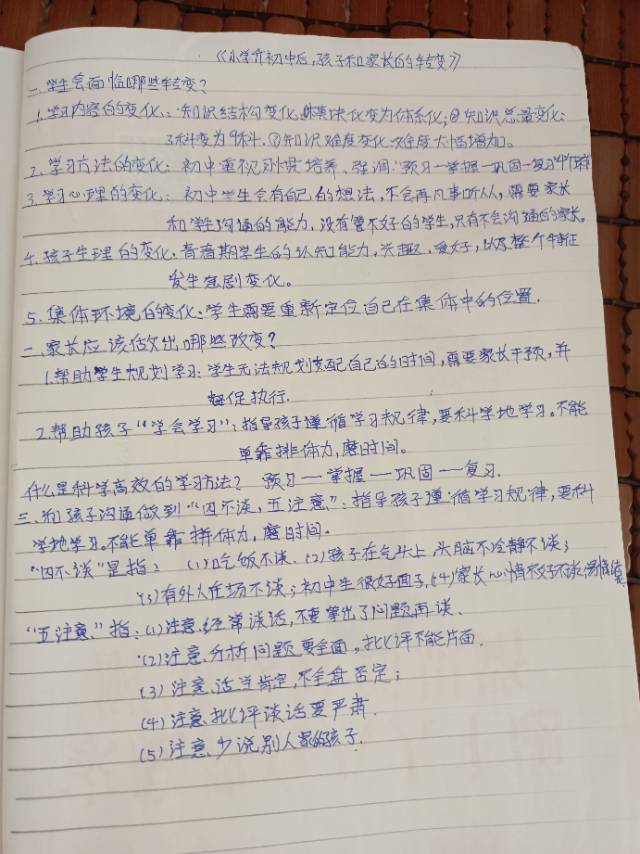 《小学升初中后,孩子和家长的转变》
一、学生会面临哪些转变?
1.学习内容的变化:知识结构变化,模块化变为体系化;②知识总量变化:
3科变为9科.③知识难度变化,难度大幅增加。
2.学习方法的变化:初中重视刚度培养、强调"预习一掌握一巩固一复习"
3.学习心理的变化:初中学生会有自己的想法,不会再凡事听从人,需要家长
和学生沟通的能力,没有管不好的学生,只有不会沟通的家长。
4.孩子生理的变化.青春期学生的认知能力,兴趣、爱好,以及整个特征
发生急剧变化。
5.集体环境的变化:学生需要重新定位自己在集体中的位置.
二、家长应该做出哪些改变?
1.帮助学生规划学习:学生无法规划支配自己的时间,需要家长干预,并
督促执行.
2.帮助孩子"学会学习":指导孩子遵循学习规律,要科学地学习。不能
单靠拼体力,磨时间。
什么是科学高效的学习方法? 预习一掌握一巩固一复习.
三、和孩子沟通做到"四不谈,五注意":指导孩子遵循学习规律,要科
学地学习,不能单靠拼体力,磨时间.
"四不谈"是指: (1)吃饭不谈.(2)孩子在气头上,头脑不冷静不谈;
(3)有外人在场不谈;初中生很好面子,(4)家长心情不好不谈,
"五注意"指:(1)注意经常谈话,不要等出了问题再谈.
(2)注意分析问题要全面,批评不能片面.
(3)注意适当肯定,不全盘否定;
(4)注意批评谈话要严肃.
(5)注意少说别人家的孩子.